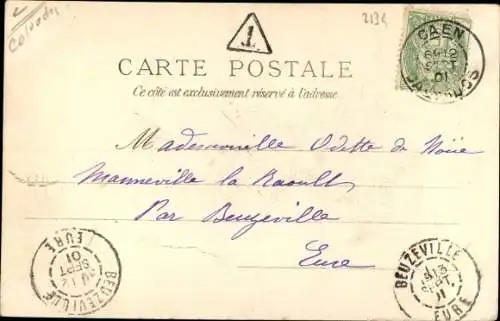 Calvados
2134
1
CAEN
SEPT
01
CALVADOS
CARTE POSTALE
Ce côté est exclusivement réservé à l'adresse.
Mademoiselle Odette de Noüe
Manneville la Raoult
Par Beuzeville
Eure
BEUZEVILLE
12
SEPT
01
EURE
BEUZEVILLE
EURE